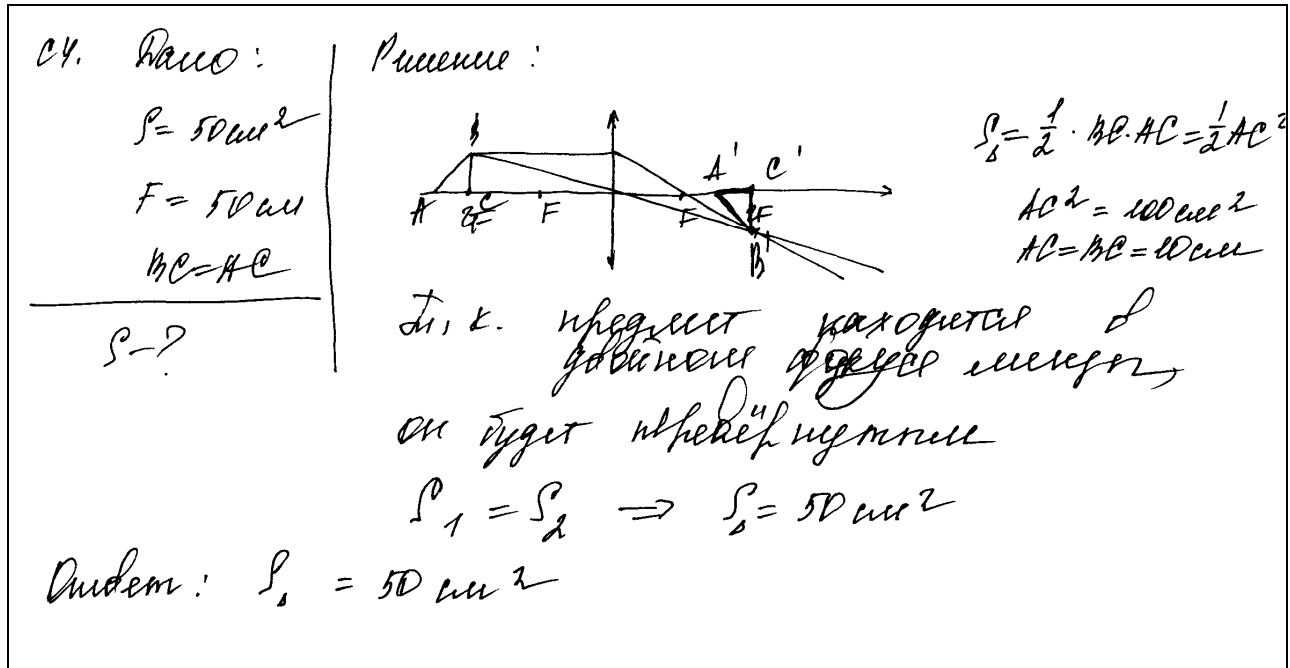 С4. Дано:
S = 50 см²
F = 50 см
BC = AC
S - ?
Решение:
B
A' C'
A 2F C F F 2F
B'
S△ = 1/2 · BC · AC = 1/2 AC²
AC² = 100 см²
AC = BC = 10 см
Т.к. предмет находится в
двойном фокусе линзы,
он будет перевёрнутым
S₁ = S₂ ⇒ S△ = 50 см²
Ответ: S△ = 50 см²